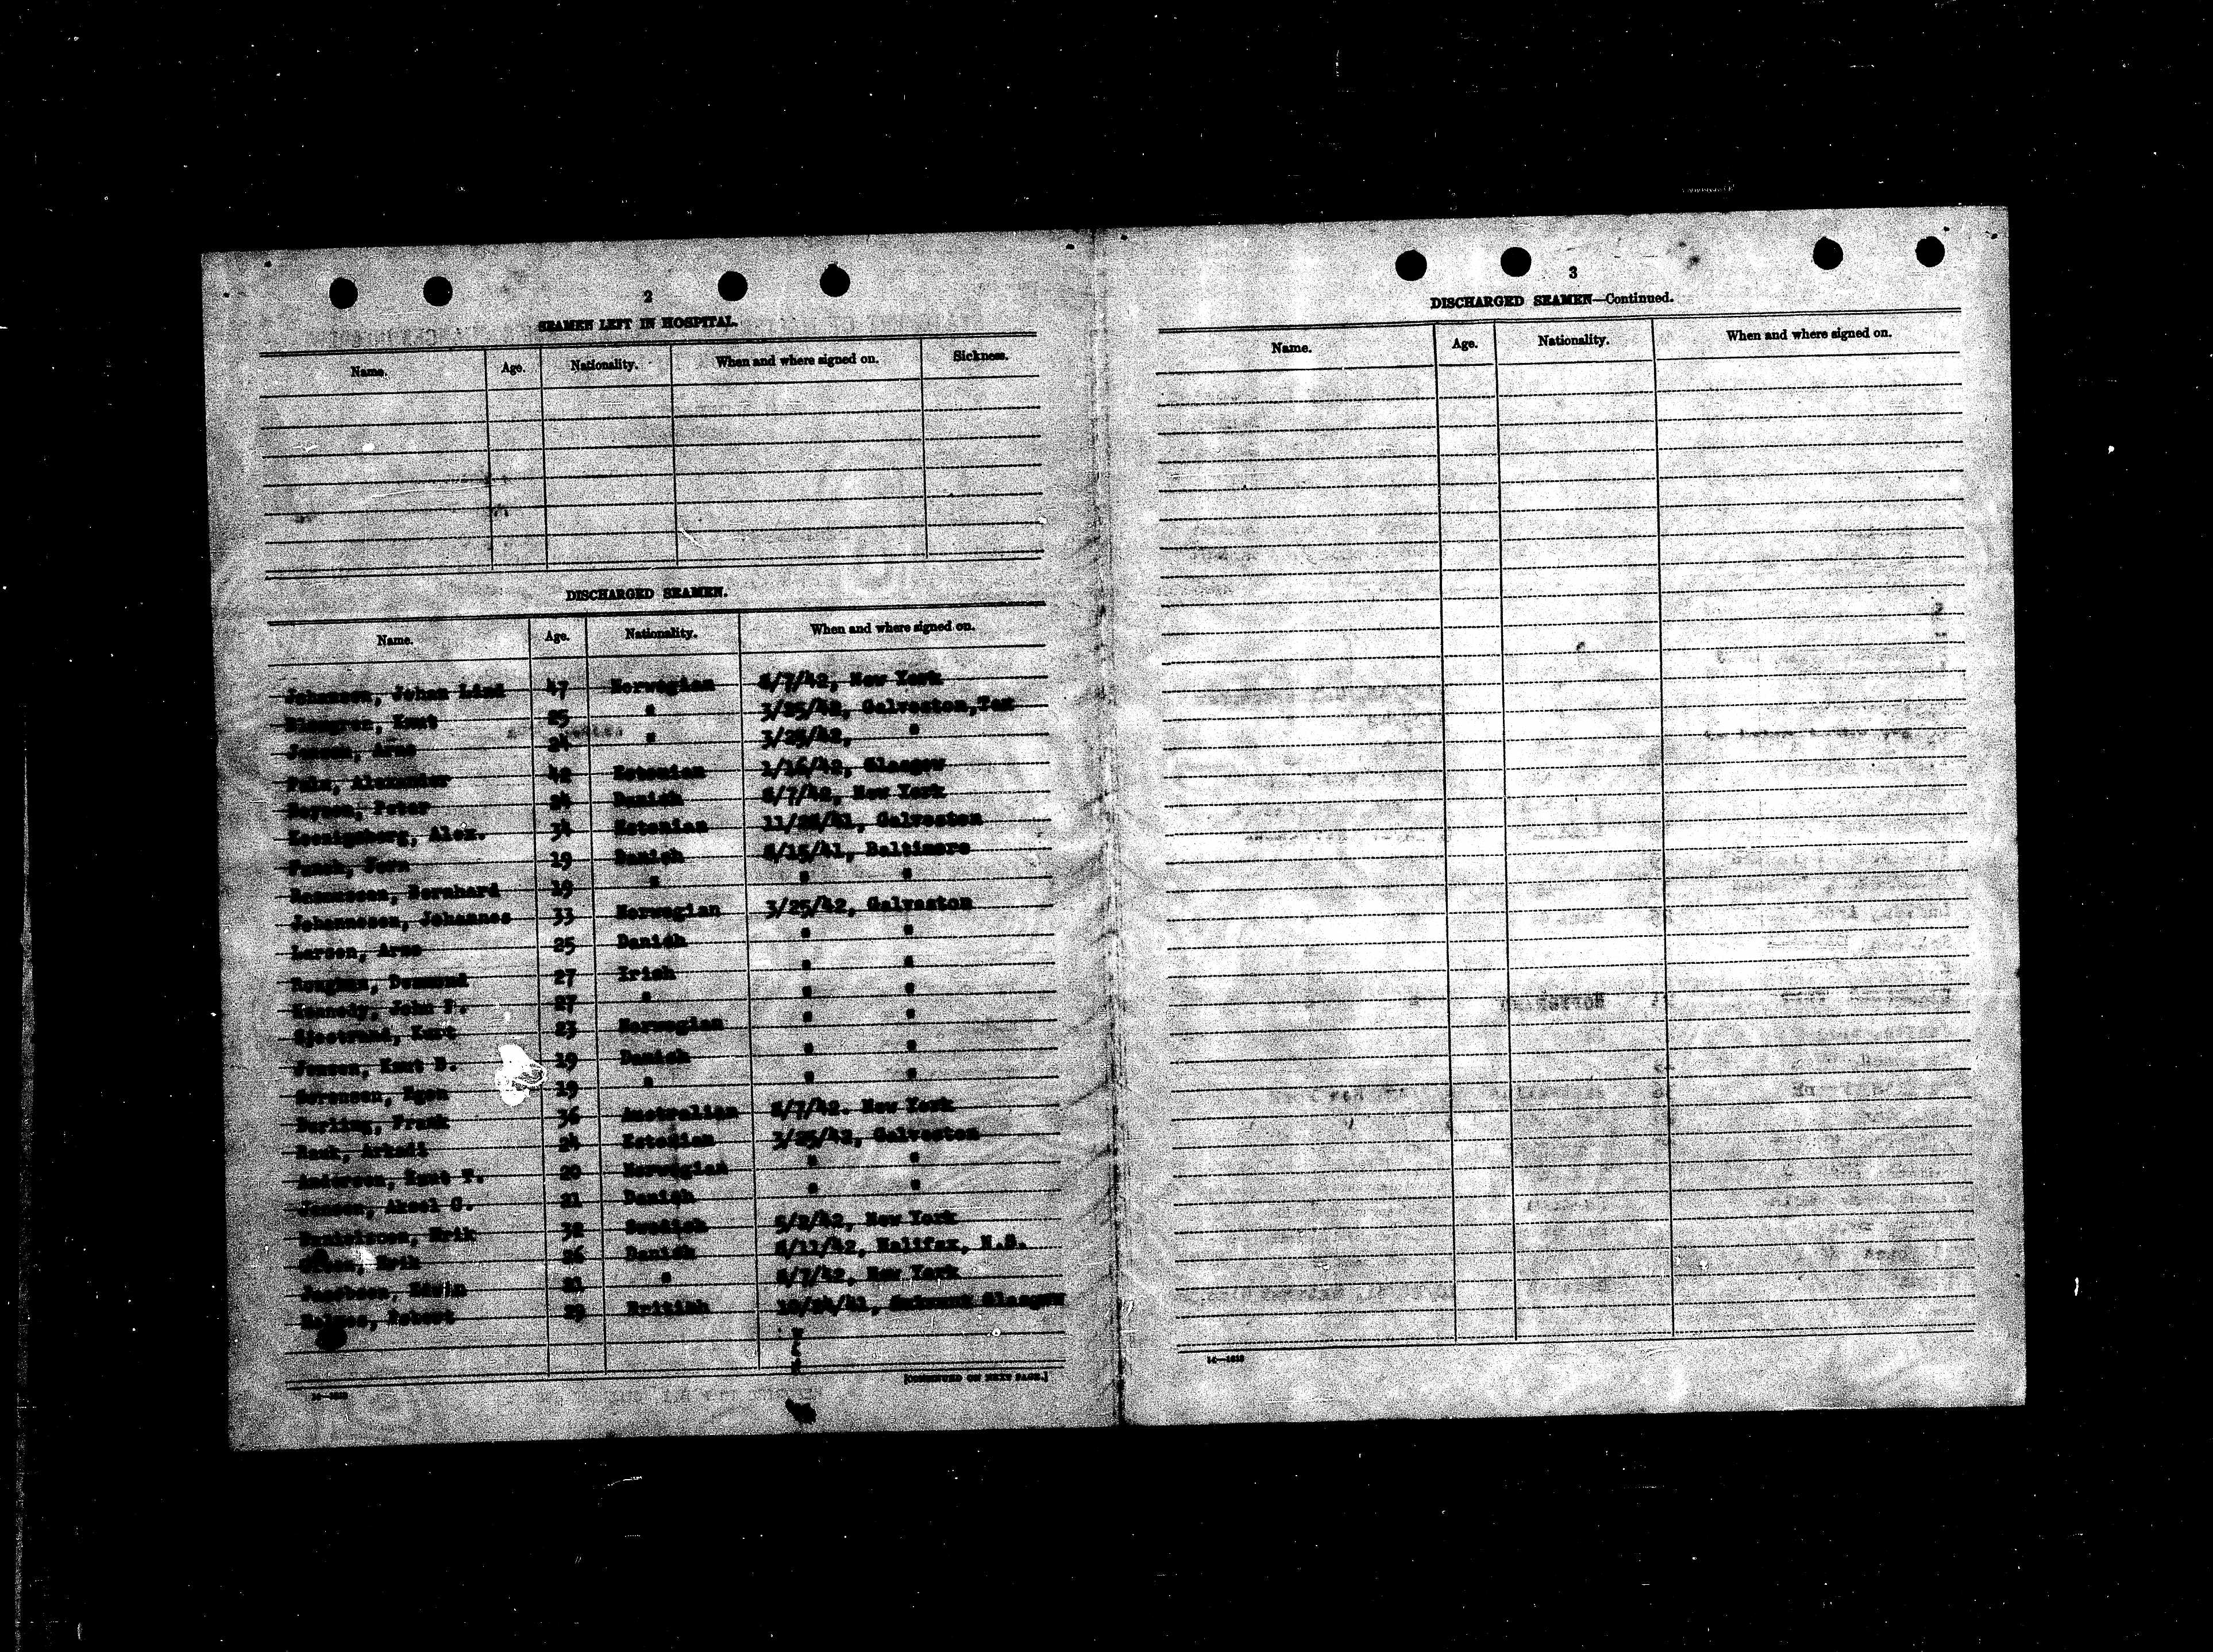 2
SEAMEN LEFT IN HOSPITAL.
Name. Age. Nationality. When and where signed on. Sickness.
DISCHARGED SEAMEN.
Name. Age. Nationality. When and where signed on.
Johansen, Johan Lind 47 Norwegian /7/42, New York
Blomgren, Knut 25 " 3/25/42, Galveston, Tex
Jensen, Arne 24 " 3/25/42, "
Alexander 42 Estonian 1/16/42, Glasgow
Boysen, Peter 24 Danish /7/42, New York
Koenigsberg, Alex. 34 Estonian 11/ /41, Galveston
Funch, Jorn 19 Danish /15/41, Baltimore
Rasmussen, Bernhard 19 " " "
Johannesen, Johannes 33 Norwegian 3/25/42, Galveston
Larsen, Arne 25 Danish " "
Desmond 27 Irish " "
Kennedy, John P. 27 " " "
Sjostrand, Kurt 23 Norwegian " "
Jensen, Knut B. 19 Danish " "
Sorensen, Egon 19 " " "
Frank 36 Australian /7/42. New York
Arkadi 24 Estonian 3/25/42, Galveston
Andersen, Knut T. 20 Norwegian " "
Jensen, Aksel C. 21 Danish " "
Erik 32 Swedish 5/2/42, New York
Erik 26 Danish /11/42, Halifax, N.S.
Jacobsen, Edwin 21 " /7/42, New York
Robert 29 British 10/24/41, Glasgow
[CONTINUED ON NEXT PAGE.]
3
DISCHARGED SEAMEN—Continued.
Name. Age. Nationality. When and where signed on.